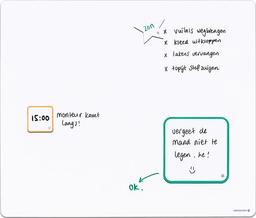 zon
x vuilnis wegbrengen
x kleed uitkloppen
x lakens vervangen
x tapijt stofzuigen
15:00
monteur komt
langs!
vergeet de
mand niet te
legen, te!
OK.